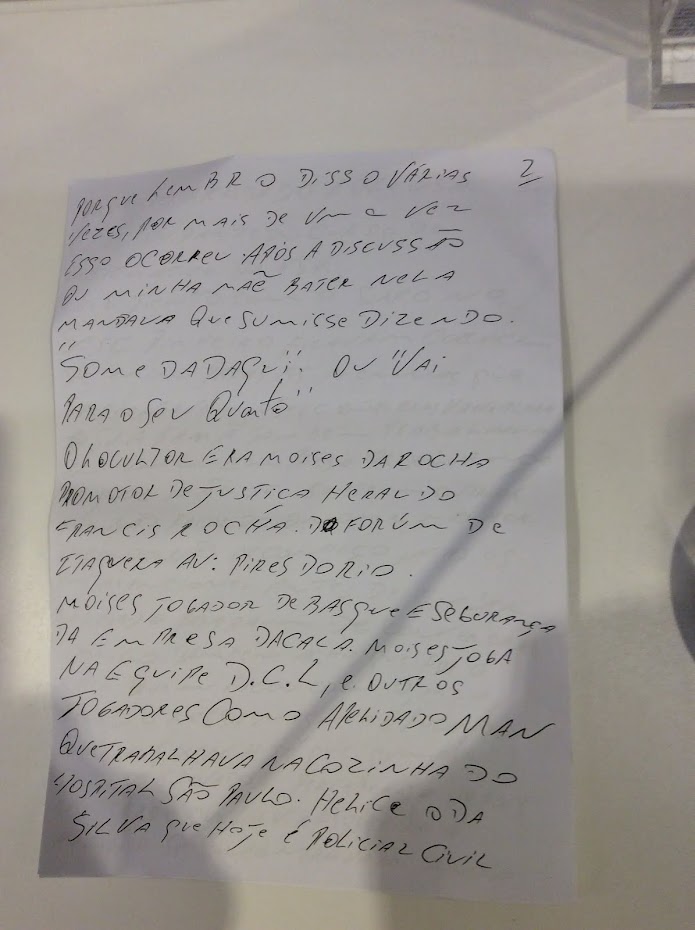 PORQUE LEMBRO DISSO VÁRIAS 2
VEZES, POR MAIS DE UMA VEZ
ESSO OCORREU APÓS A DISCUSSÃO
OU MINHA MÃE BATER NELA
MANDAVA QUE SUMISSE DIZENDO.
"SOME DADAQUI". OU "VAI
PARA O SEU QUARTO"
O LOCULTOR ERA MOISES DA ROCHA
PROMOTOR DE JUSTIÇA HERALDO
FRANCIS ROCHA. DO FORÚM DE
ITAQUERA AV: PIRES DO RIO.
MOISES JOGADOR DE BASQUE E SEGURANÇA
DA EMPRESA DACALA. MOISES JOGA
NA EQUIPE D.C.L, e OUTROS
JOGADORES COMO APELIDADO MAN
QUE TRABALHAVA NA COZINHA DO
HOSPITAL SÃO PAULO. DA
SILVA QUE HOJE É POLICIAL CIVIL